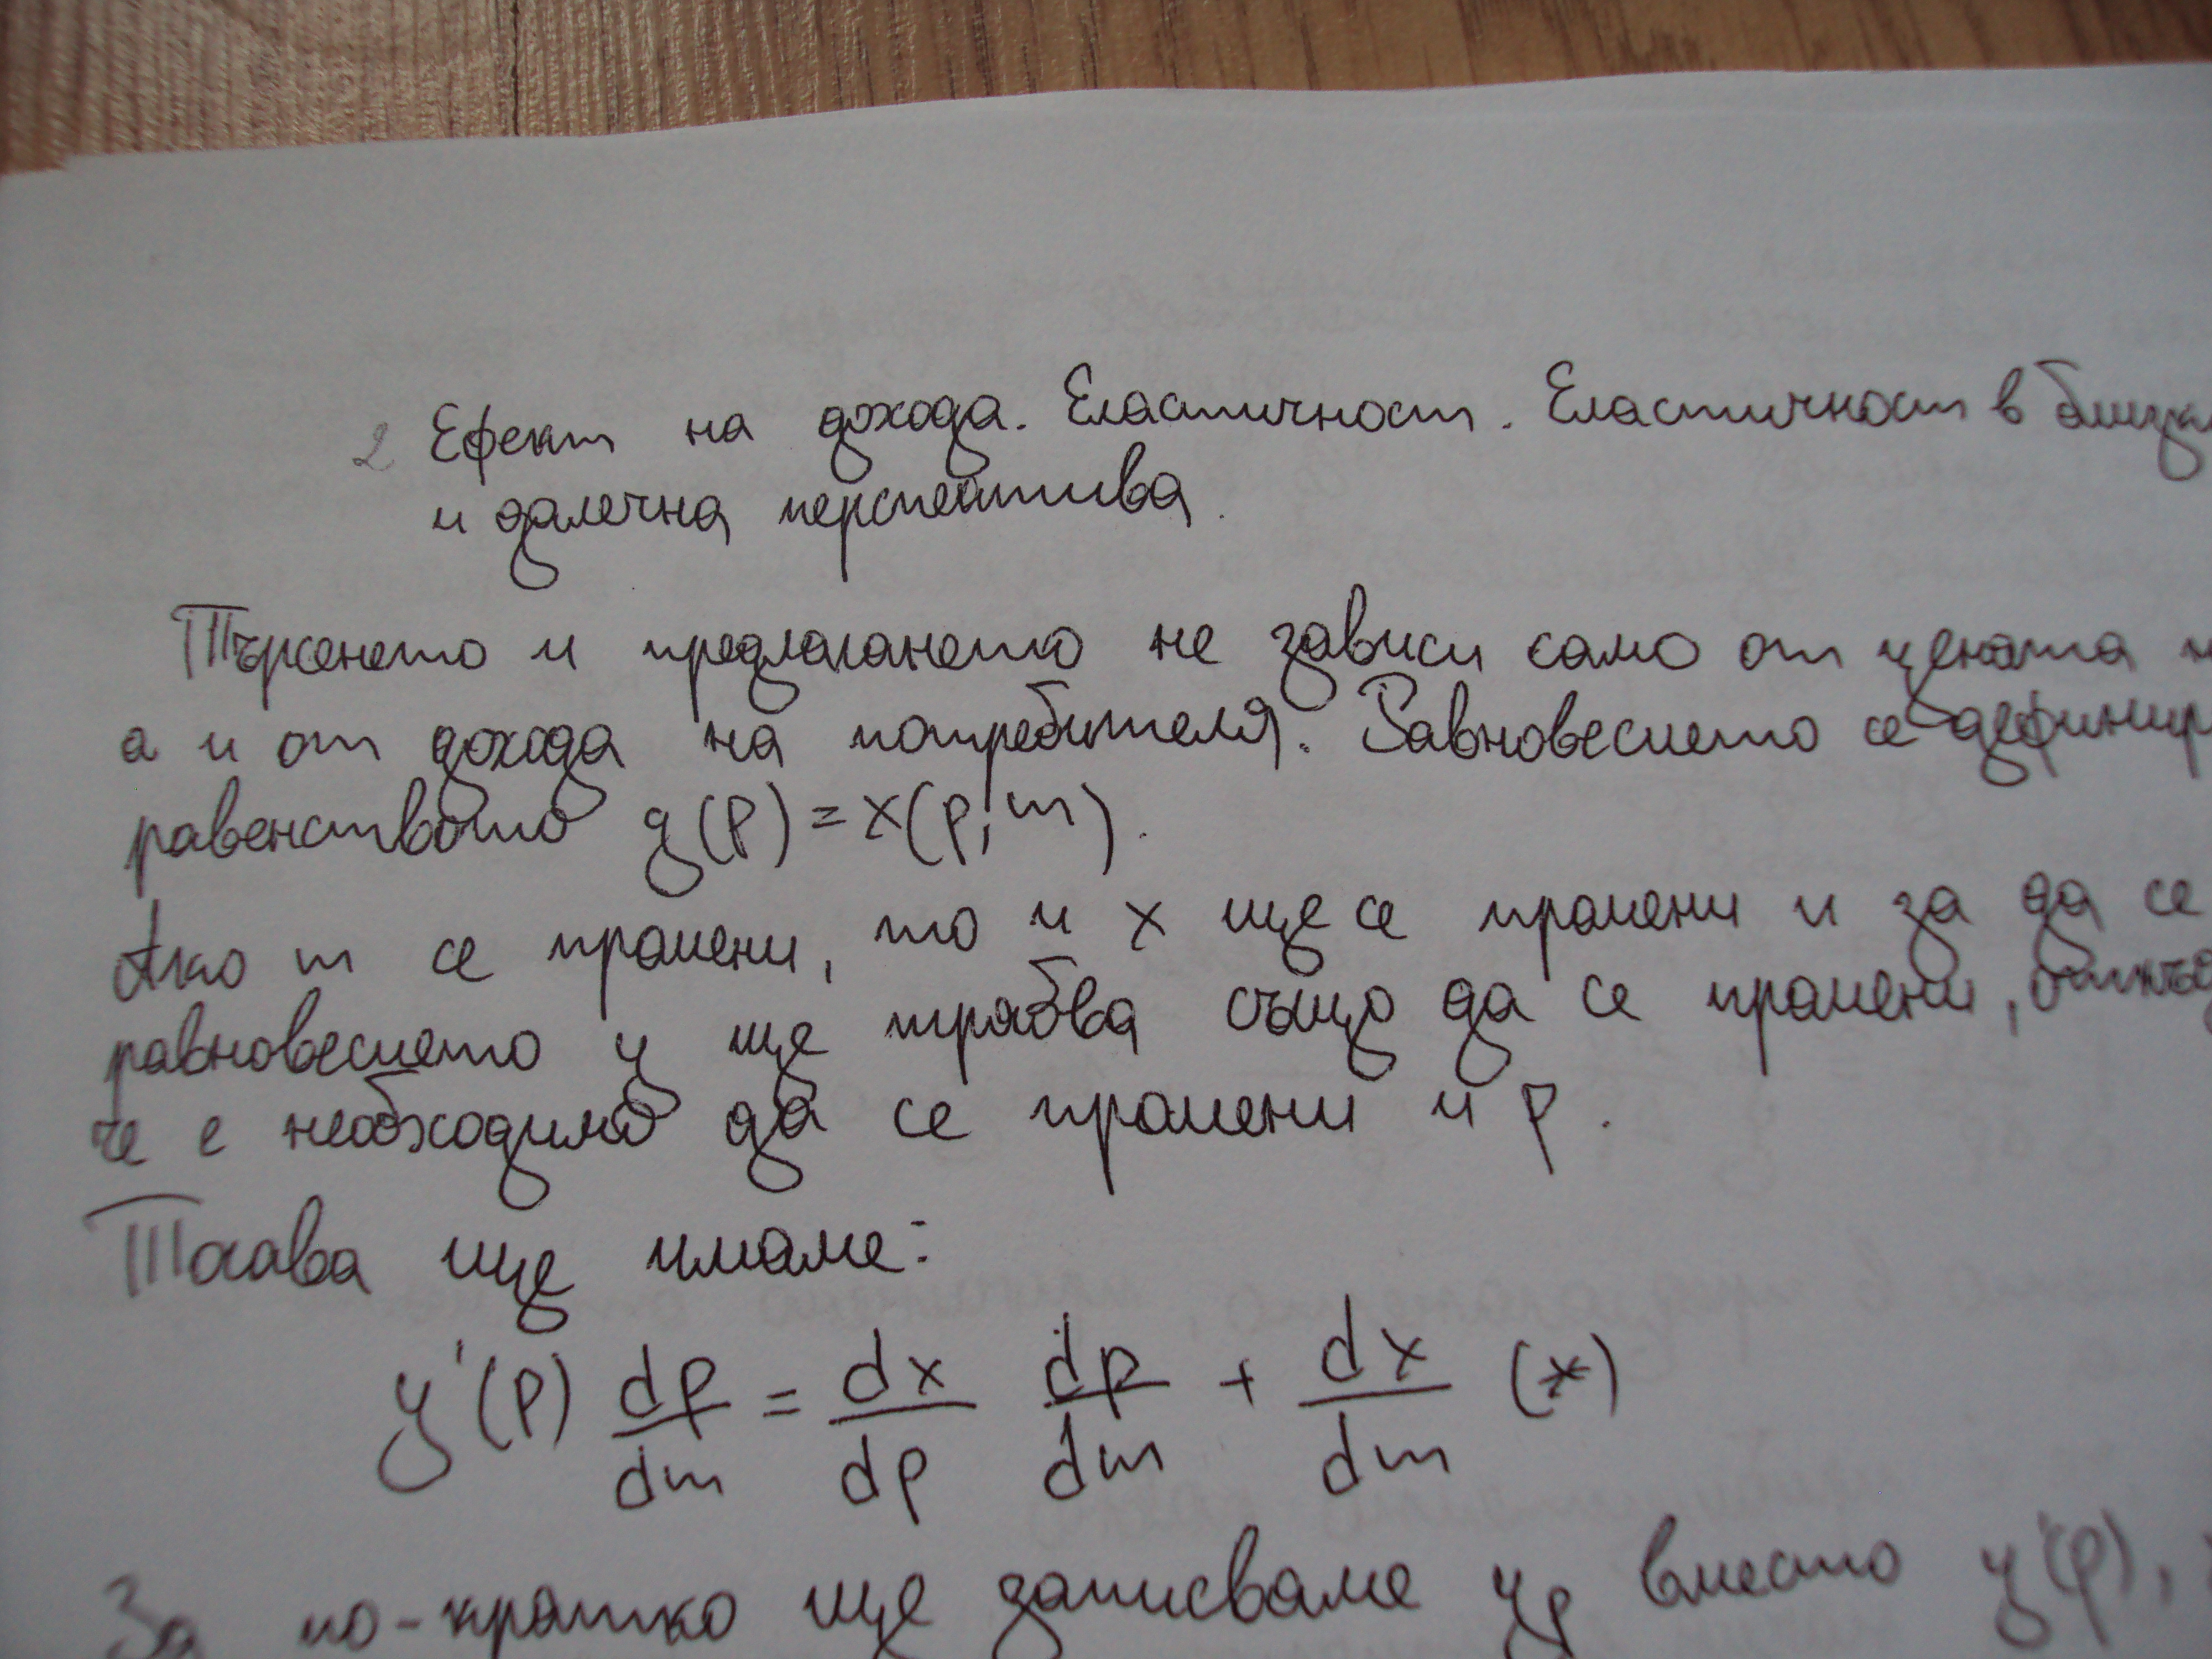 2 Ефект на дохода. Еластичност. Еластичност в
и далечна перспектива.
Търсенето и предлагането не зависи само от цената
а и от дохода на потребителя. Равновесието се
равенството y(p) = x(p, m).
Ако m се промени, то и x ще се промени и за да се
равновесието y ще трябва също да се промени,
че е необходимо да се промени и p.
Тогава ще имаме:
y'(p) dp/dm = dx/dp dp/dm + dx/dm (*)
За по-кратко ще записваме y_p вместо y'(p),